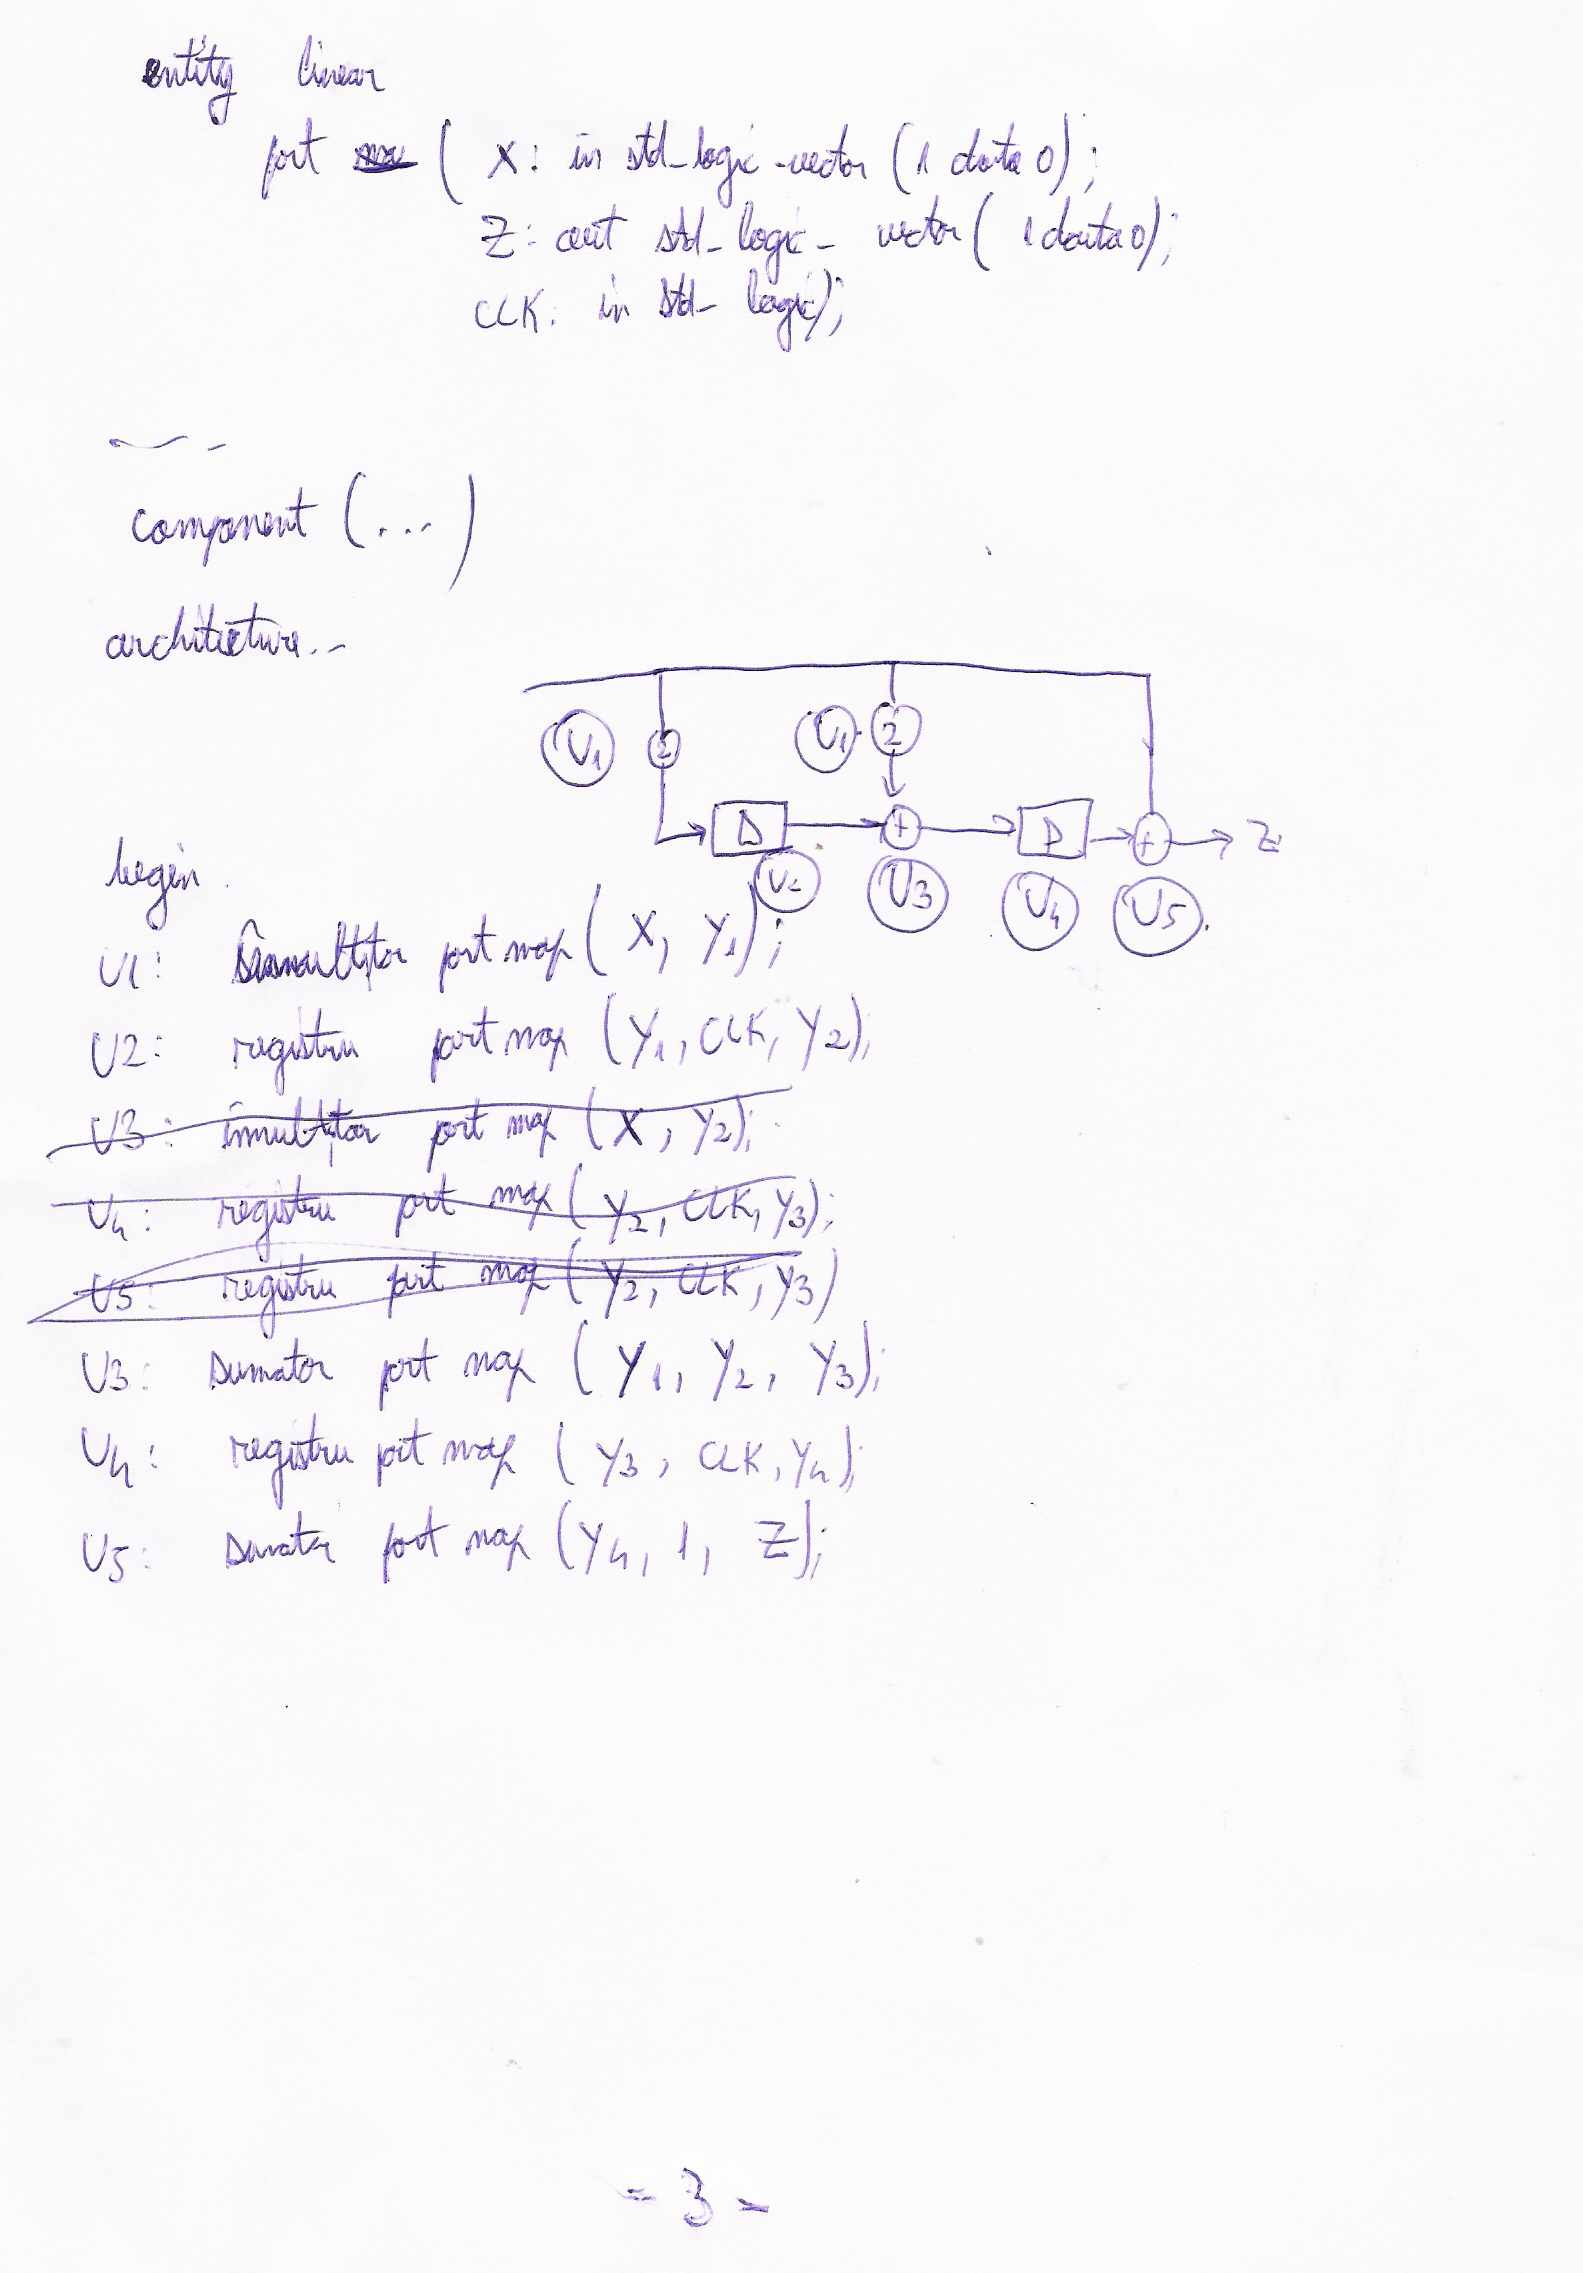 entity linear
port ( X: in std_logic_vector (1 data 0);
Z: out std_logic_vector (1 data 0);
CLK: in std_logic);
component (...)
architecture..
U1 2 U1 2
D + D + Z
U2 U3 U4 U5
begin
U1: înmulțitor port map ( X, Y1);
U2: registru port map (Y1, CLK, Y2);
U3: înmulțitor port map ( X, Y2);
U4: registru port map ( Y2, CLK, Y3);
U5: registru port map ( Y2, CLK, Y3)
U3: sumator port map ( Y1, Y2, Y3);
U4: registru port map ( Y3, CLK, Y4);
U5: sumator port map (Y4, 1, Z);
- 3 -